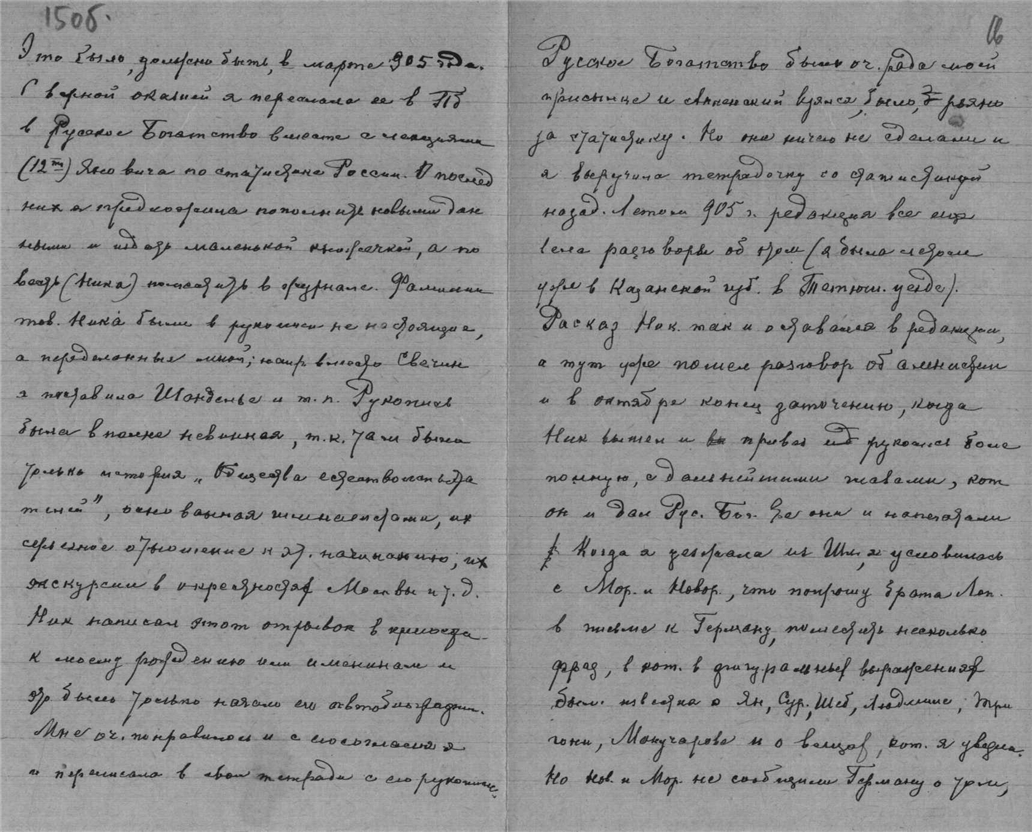 150б.
Это было, должно быть, в марте 905 года.
С верной оказией я переслала ее в Пб
в Русское Богатство вместе с лекциями
(12ть) Яновича по статистике России.
них я предложила пополнить новыми дан
ными и издать маленькой книжечкой, а по
весть (Ника) поместить в журнале. Фамилии
тов. Ника были в рукописи не настоящие,
а переделанные мной; напр вместо Свечин
я поставила Шанделье и т.п. Рукопись
была вполне невинная, т.к. там была
только история „Общества естествоиспыта
телей", основанная гимназистами, их
серьезное отношение к эт. начинанию, их
экскурсии в окрестностях Москвы и т.д.
Ник написал этот отрывок в крепости
к моему рождению или именинам и
это было только начало его автобиографии.
Мне оч. понравилось и с его согласия я
и переписала в свои тетради с его рукописи.
16
Русское Богатство было оч. рада моей
присылке и Анненский взялся, было, рьяно
за статистику. Но они ничего не сделали и
я выручила тетрадочку со статистикой
назад. Летом 905 г. редакция все еще
вела разговоры об этом (я была летом
уже в Казанской губ. в Тетюш. уезде).
Расказ Ник. так и оставался в редакции,
а тут уже пошел разговор об амнистии
и в октябре конец заточению, когда
Ник вышел и привез рукопись более
полную, с дальнейшими главами, кот
он и дал Рус. Бог. Где они и напечатали
Когда я уезжала из Шл, я условилась
с Мор. и Новор., что попрошу брата Лоп.
в письме к Герману, поместить несколько
фраз, в кот. в фигуральных выражениях
было известие о Ян, Сур, Шеб, Людмиле, Три
гони, Манучарове и о вещах, кот. я увезла.
Но Нов. и Мор. не сообщили Герману о том,